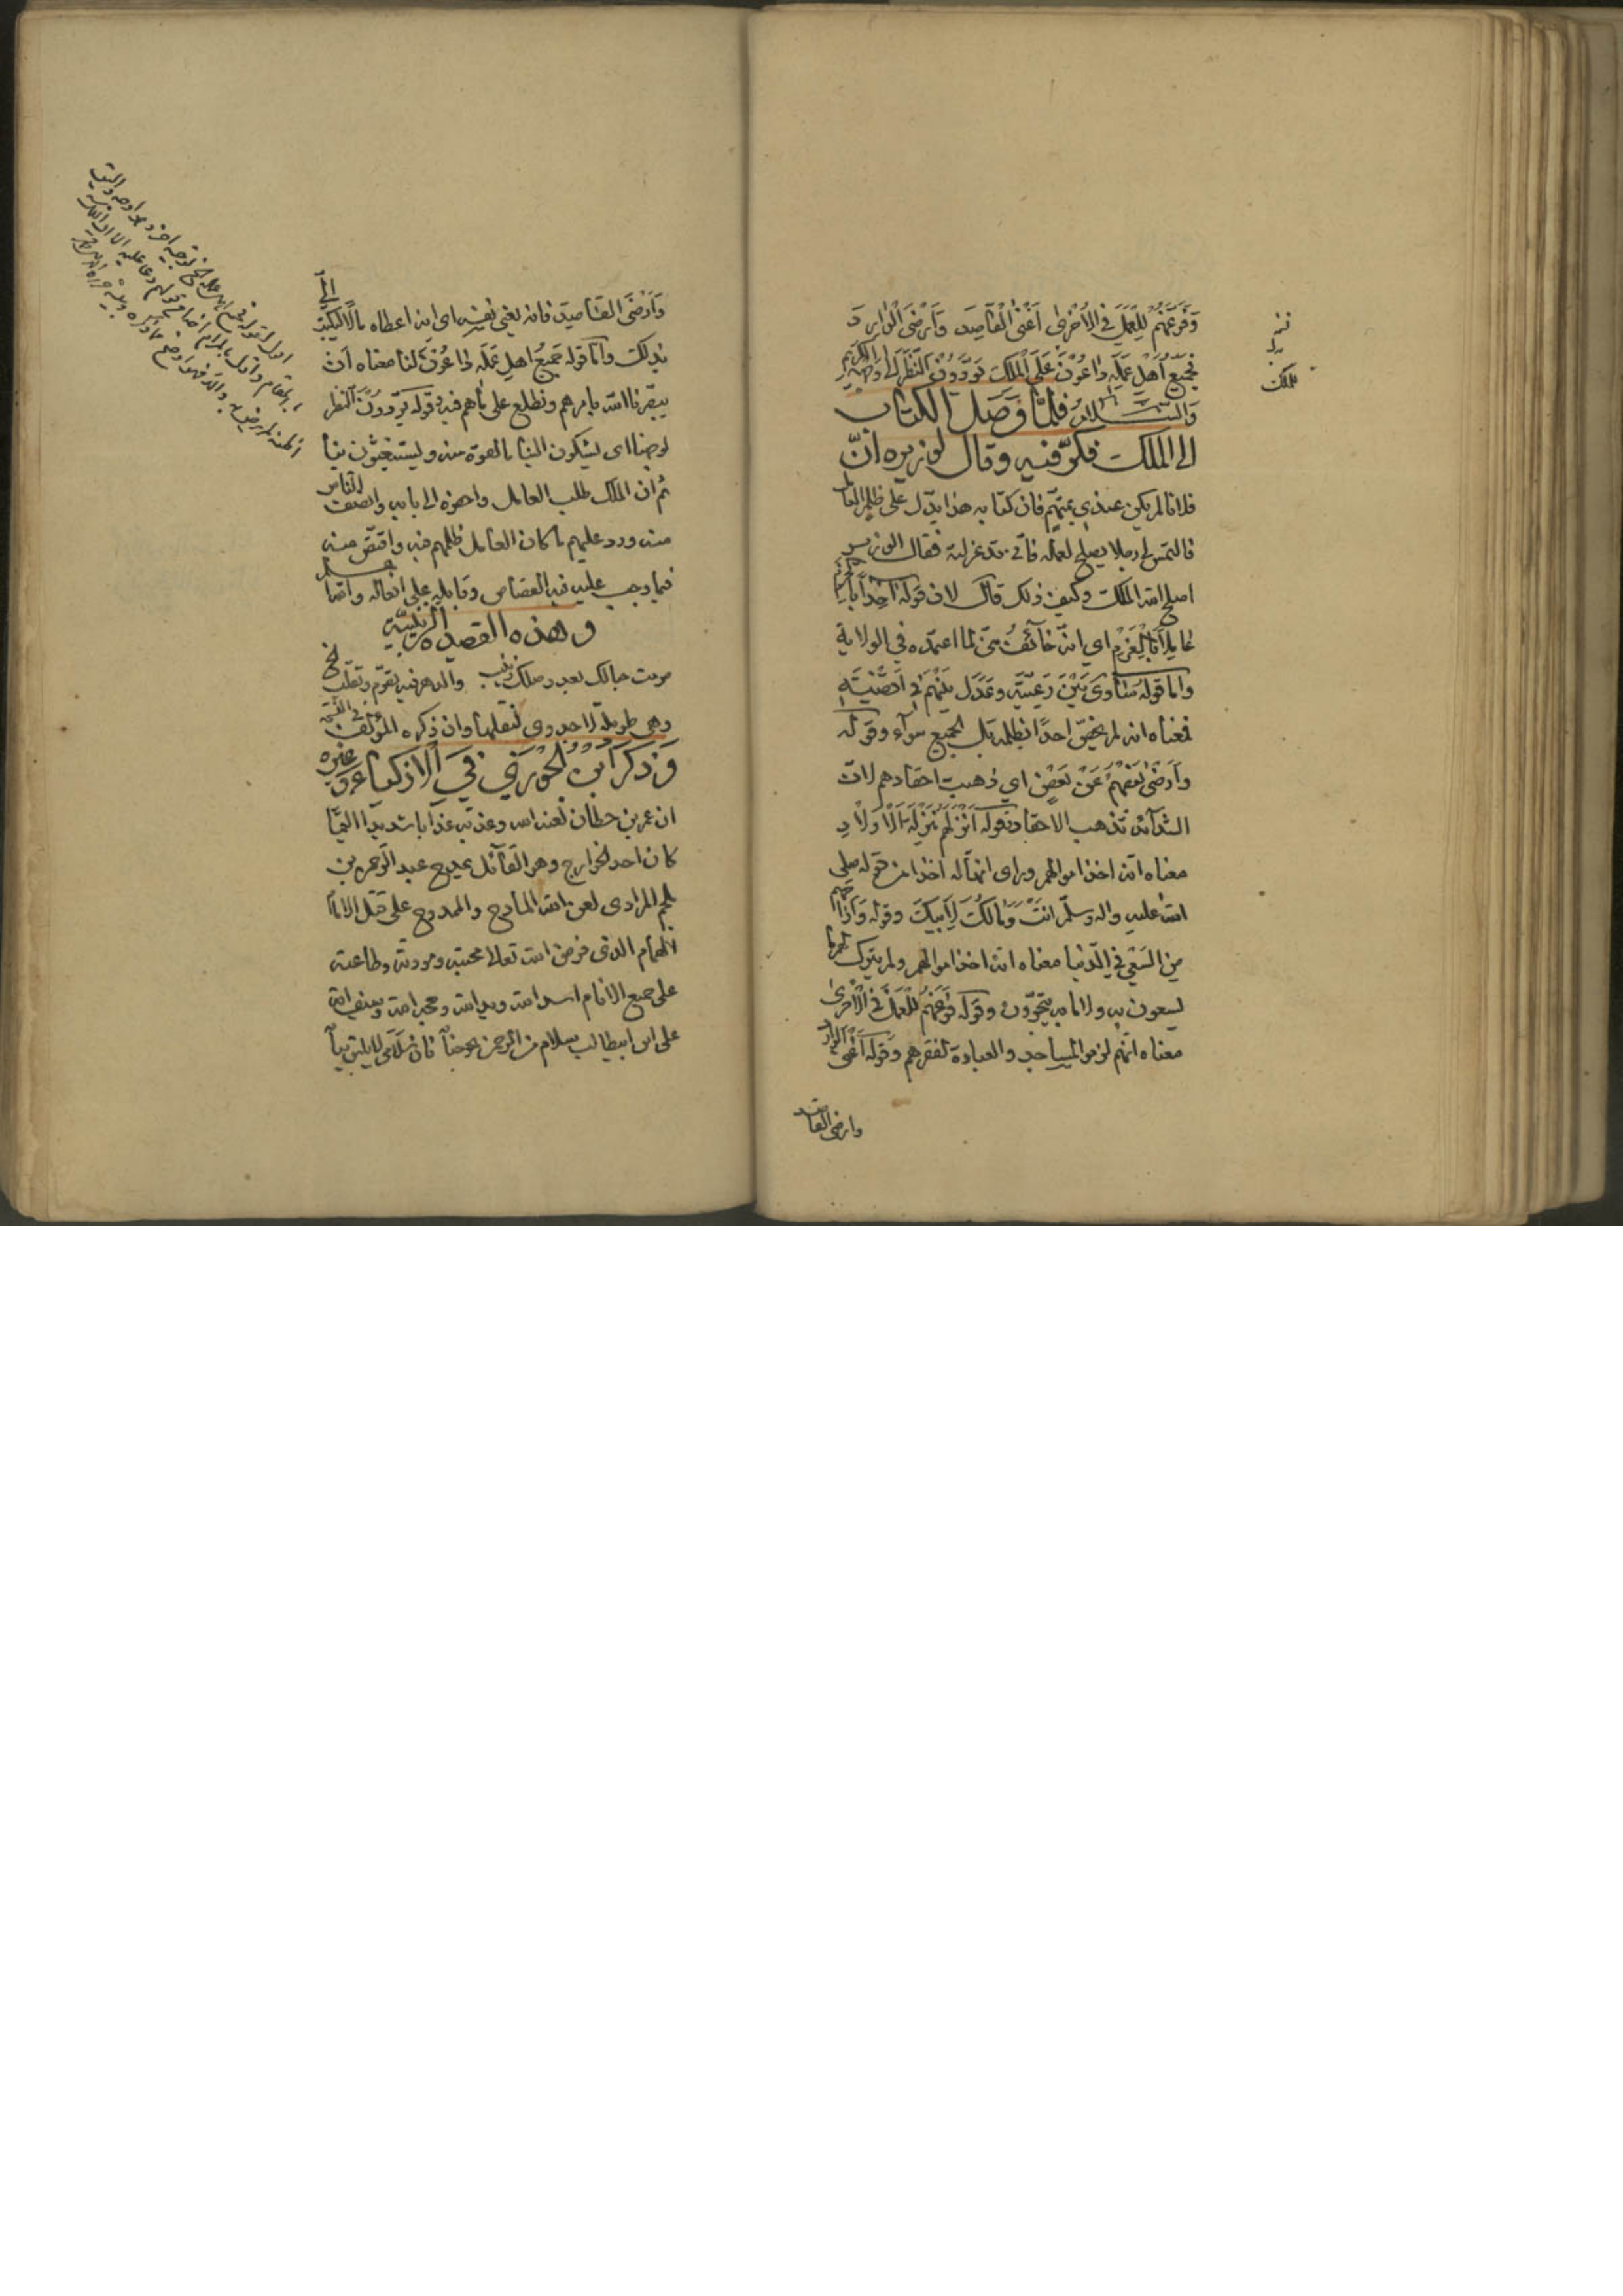 وَفَرَّغَهُمْ لِلْعَمَلِ فِي الْأُخْرٰى أَغْنَى الْقَاصِدَ وَأَرْضَى الْوَارِدَ
فَجَمِيعُ أَهْلِ عَمَلِهِ دَاعُونَ عَلَى الْمَلِكِ يَوَدُّونَ النَّظَرَ إِلَى وَجْهِهِ الْكَرِيمِ
وَالسَّلَامُ فَلَمَّا وَصَلَ الْكِتَابُ
الى الملك فكّر فيه وقال لوزيره انّ
فلانا لم يكن عندي بمتهم فان كتابه هذا يدل على ظلم العا
فالتمس لي رجلا يصلح لعمله فاني قد عزلته فقال الوزير
اصلح الله الملك وكيف ذلك قال لان قوله اخذاً بالحزم
عاملاً بالعزم اي انه خائف منى لما اعتمده في الولاية
واما قوله سَاوى بَيْنَ رَعِيَّتِهِ وعَدَلَ بَيْنَهُمْ في اَقْضِيَتِهِ
فمعناه انه لم يخصّ احدًا بظلمه بل الجميع سوآء وقوله
وأَرْضى بَعْضَهُمْ عَنْ بَعْضٍ اي ذهبت احقادهم لانّ
الشدآئد تذهب الاحقاد وقوله أَنْزَلَهُمْ مَنْزِلَةَ الْأَوْلَادِ
معناه انّه اخذ اموالهم وراى انها له اخذا من قوله صلى
الله عليه واله وسلّم انتَ وَمَالُكَ لِأَبِيكَ وقوله وَاَرَاحَهُمْ
مِنَ السَّعْيِ فِي الدُّنيا معناه انه اخذ اموالهم ولم يترك لهم ما
يسعون به ولا ما به يتجرّون وقوله فَرَّغَهُمْ لِلْعَمَلِ فِي الْأُخْرٰى
معناه انهم لزموا المساجد والعبادة لفقرهم وقوله أَغْنى الوارد
وارضى القاصد
للملك
وَأَرْضَى القَاصِدَ فانه يعني نفسه اى انه اعطاه مالًا ليكتب الىّ
بذلك واما قوله جَمِيعُ اهلِ عَمَلِه دَاعُونَ لنا معناه اَنْ
يبصّرنا الله بامرهم ونطلع على ما هم فيه وقوله يَوَدُّونَ النظر
لوجهنا اى ليشكون الينا ما لقوه منه وليستغيثون بنا
ثم ان الملك طلب العامل واحضره الى بابه وانصف الناس
منه وردد عليهم ما كان العامل ظلمهم فيه واقتصّ منه
فيما وجب عليه فيه القصاص وقابله على افعاله
وهذه القصيدة الزينبيّة
صرمت حبالك بعد وصلك زينب والدهر فيه تصرّم وتقلّب الخ
وهي طويلة لا جدوى لنقلها وان ذكره المؤلّف
وَذكر ابن الجوزي في الاذكياء وغيره
ان عمر بن حطان لعنه الله وعذبه عذابا شديدا اليمًا
كان احد الخوارج وهو القآئل بمدح عبد الرحمن بن
ملجم المرادى لعن الله المادح والممدوح على قتل الامام
الهمام الذى فرض الله تعالا محبته ومودته وطاعته
على جميع الانام اسد الله ويد الله وسيف الله
على ابن ابيطالب سلام من الرحمن نحو جنابه فان سلامى لا يليق ببابه